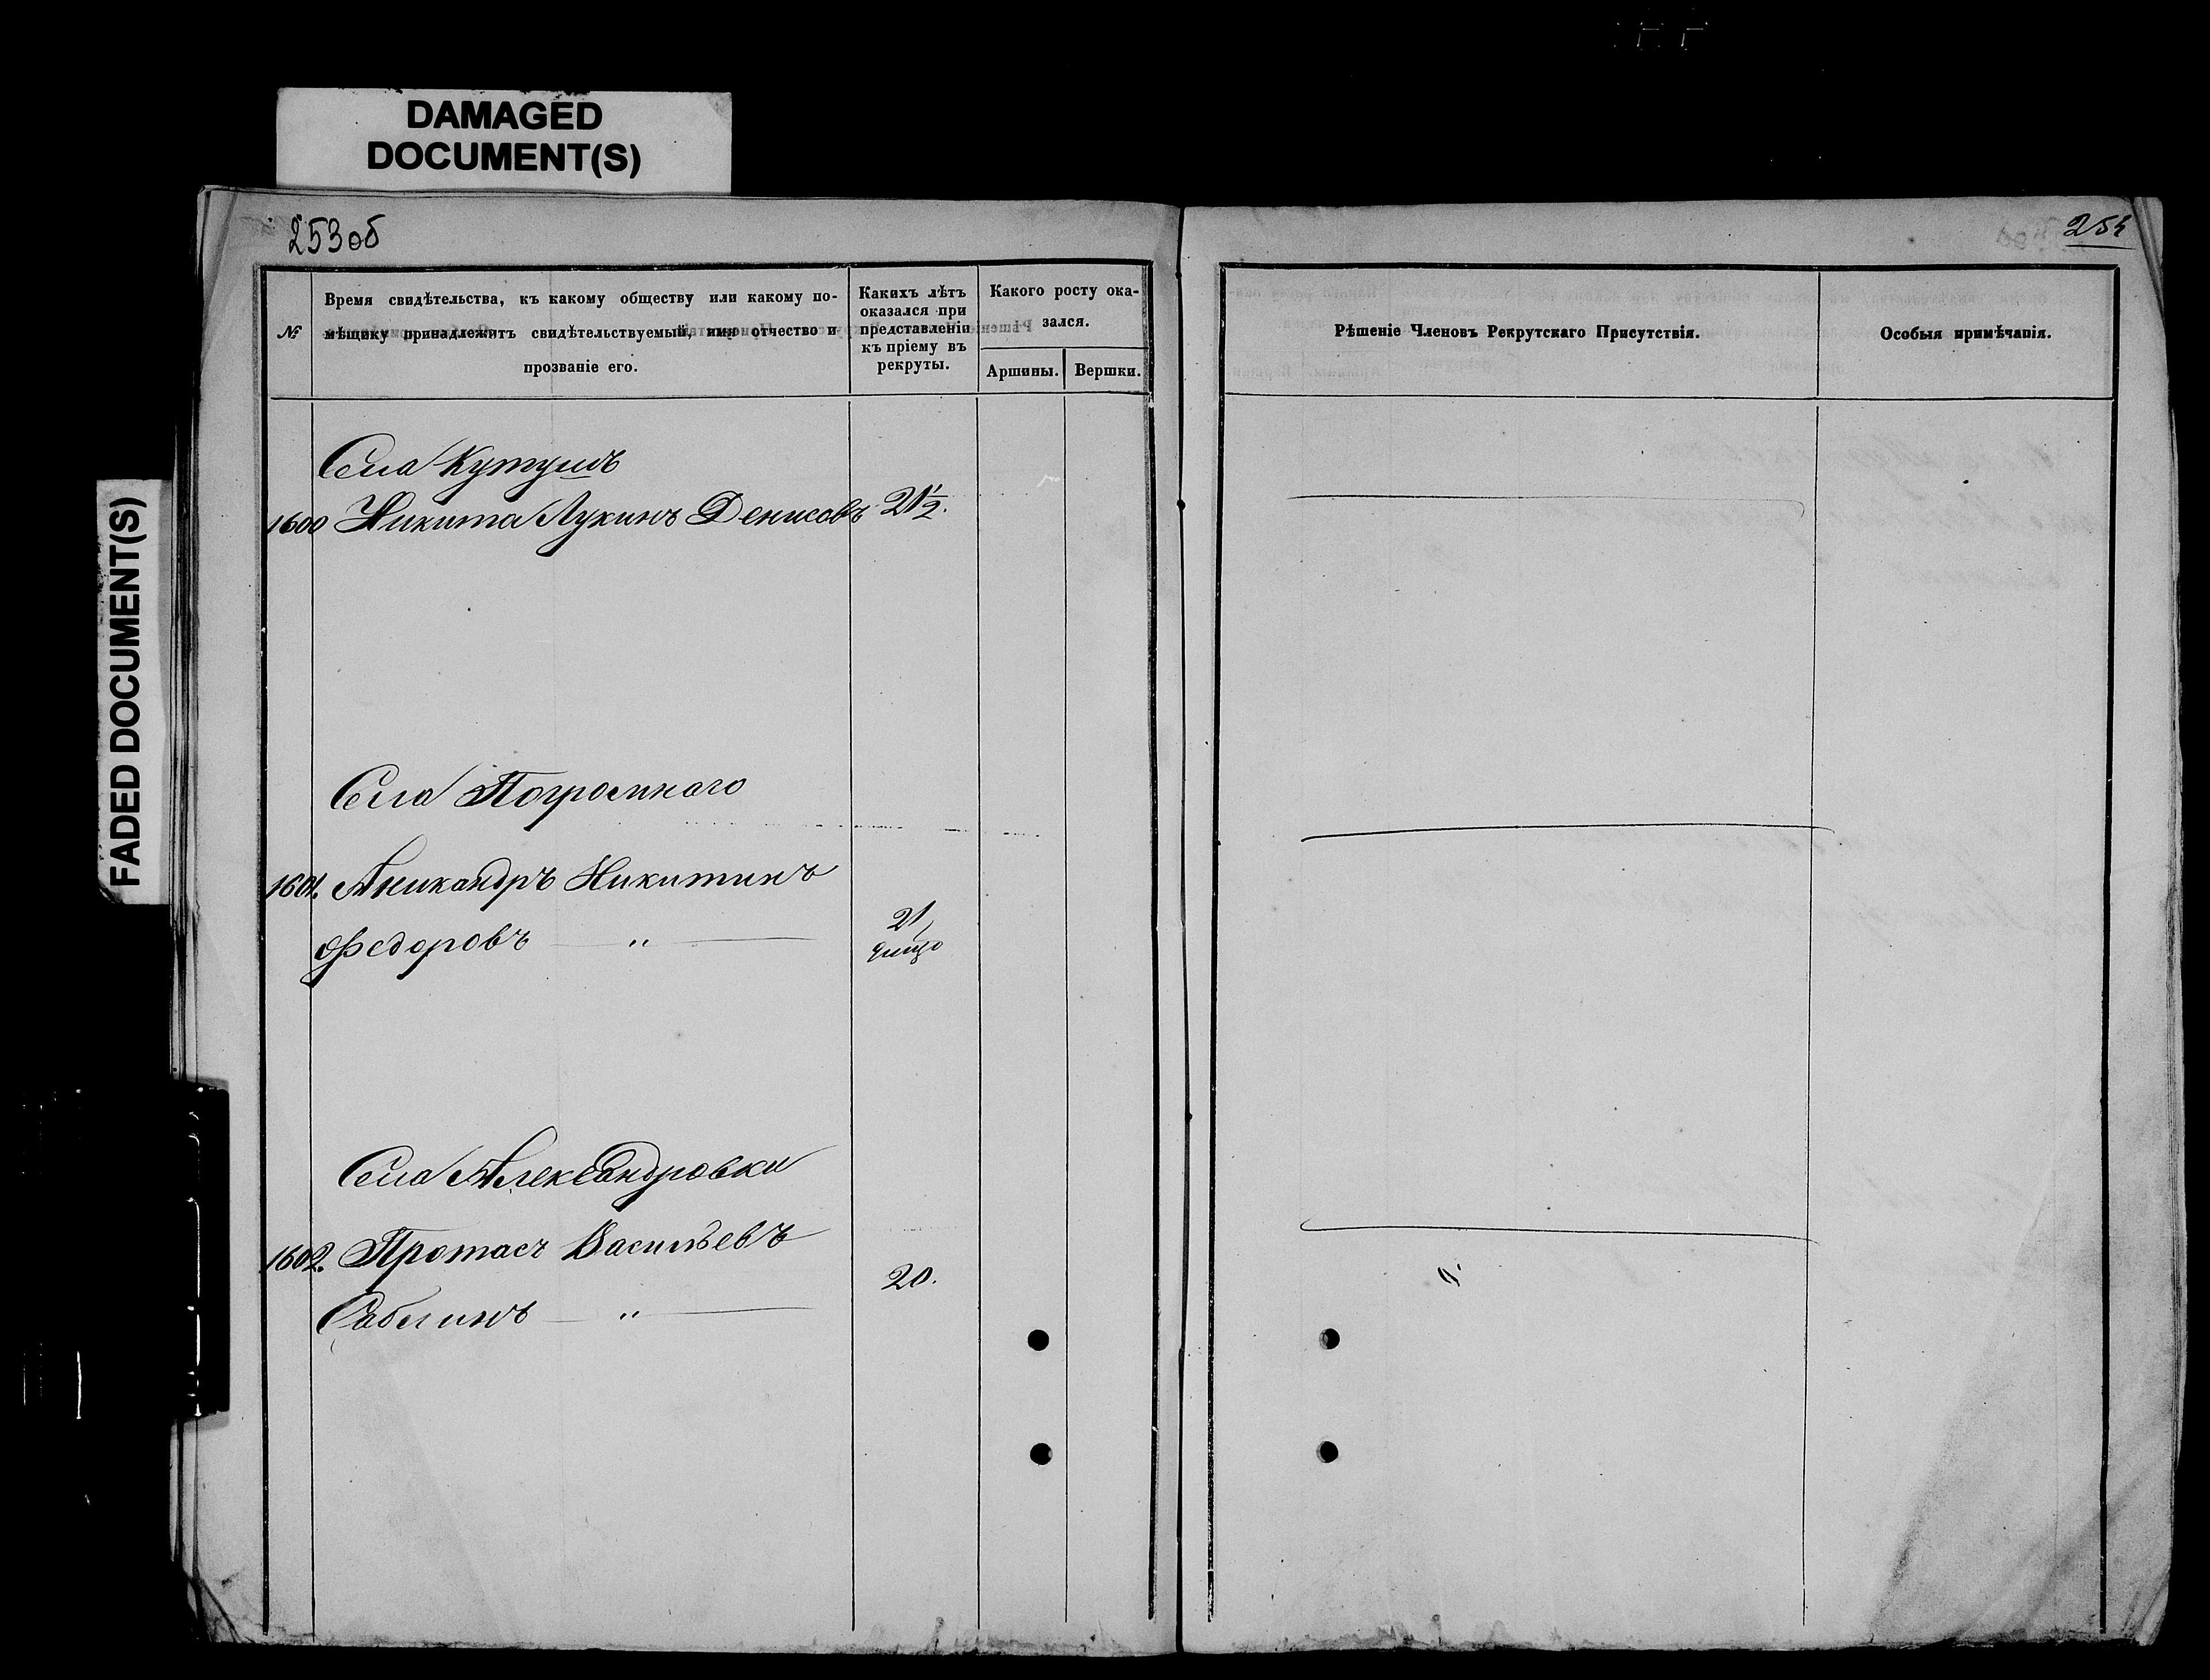 DAMAGED
DOCUMENT(S)
FADED DOCUMENT(S)
253об
№
Время свидѣтельства, къ какому обществу или какому по-
мѣщику принадлежитъ свидѣтельствуемый, имя отчество и
прозваніе его.
Какихъ лѣтъ
оказался при
представленіи
къ пріему въ
рекруты.
Какого росту ока-
зался.
Аршины.
Вершки.
Села Кутуши
1600 Никита Лукинъ Денисовъ 21½.
Села Погромнаго
1601. Аникандръ Никитинъ
Федоровъ — " —
21
Села Александровки
1602. Протасъ Васильевъ
20.
Саблинъ — " —
254
Рѣшеніе Членовъ Рекрутскаго Присутствія.
Особыя примѣчанія.